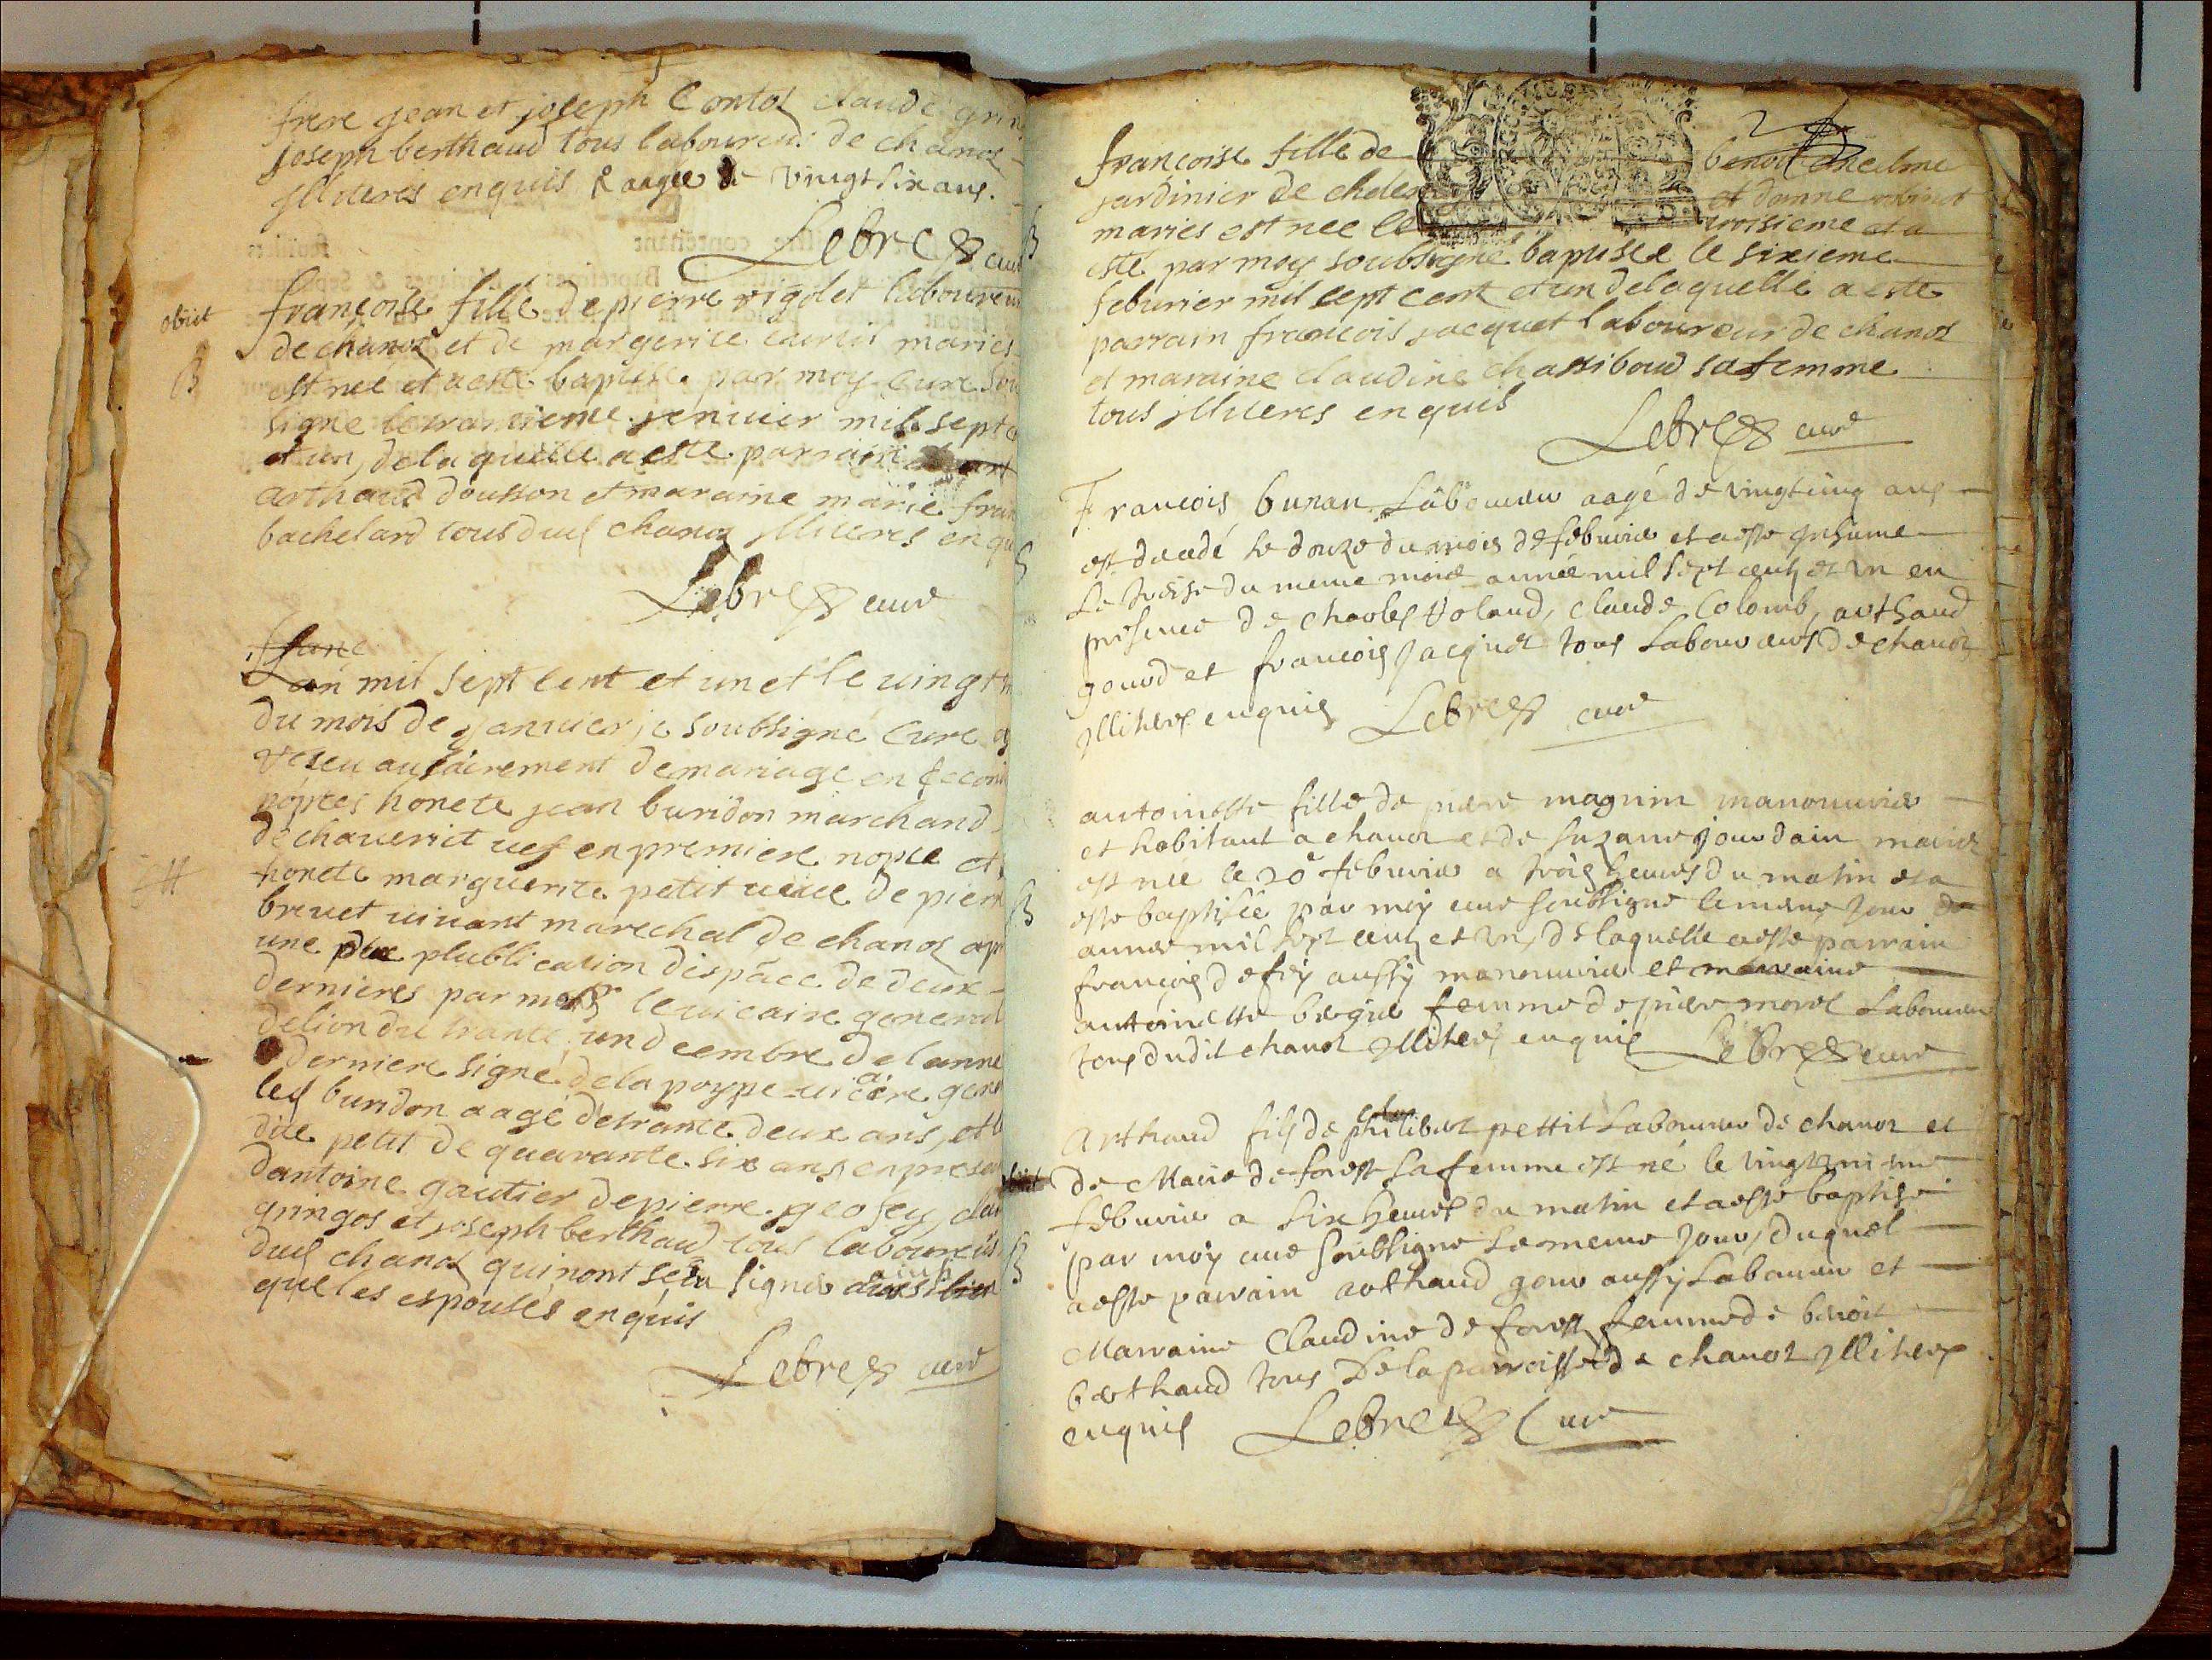 frere jean et joseph Contoz claude grin
joseph berthaud tous laboureu: de chanoz
jlliteres enquis & aagee de vingt six ans.
Lebre curé
obiit
francoise fille de pierre rigolet laboureur
de chanoz et de margerite maries
B
est nee et a esté baptisée par moy cure sou
signe le janvier mil sept c
et un, de la quelle a este parrain
arthaud dousson et maraine marie fran
bachelard tous dud chanoz jlliteres enqu
Lebre curé
Lan mil sept cent et un et le vingt
du mois de janvier je soubsigné Curé ay
receu au sacrement de mariage en second
nopces honete jean buridon marchand
de chaveriat vef en premiere nopce et
H
honete marguerite petit veuve de pierr
brevet vivant marechal de chanoz apr
une plublication dispāce de deux
dernieres par le vicaire general
delion du trante un decembre de lanne
derniere signé de la poype vicaire gene
led buridon aagé de trante deux ans, et l
dite petit de quarante six ans en presen
dantoine gautier de pierre geofey, clau
gringos et joseph berthaud tous laboureūs
dud chanoz qui nont sçeu signer ainsi
que les espousés enquis
Lebre curé
francoise fille de benoit
jardinier de et
maries est nee le troisieme et a
esté par moy soubsigné baptisee le sixieme
feburier mil sept cent et un de laquelle a esté
parrain francois jacquet laboureur de chanoz
et maraine claudine chassiboud sa femme
tous jlliteres enquis
Lebre curé
B
Francois buran Laboureur aagé de vingtcinq ans
est decedé le douze du mois de febvrier et a este jnhumé
S
Le treise du meme mois année mil sept cents et un en
presence de charles voland, claude Colomb, arthaud
gourd et francois Jacquet tous Laboureurs de chanoz
jlliteres enquis Lebre curé
antoinette fille de pierre magnin manouvrier
et habitant a chanoz et de suzanne jourdain mariez
est née le 20e febvrier a trois heures du matin et a
B
este baptisée par moy curé soubsigné le meme jour
année mil sept cents et un, de laquelle a este parrain
françois defey aussy manouvrier et marraine
antoinette femme de pierre morel Laboureur
tous dudit chanoz jlliteres enquis Lebre curé
Arthaud fils de philibert pettit Laboureur de chanoz et
obiit
de Marie de forest sa femme est né le
febvrier a six heures du matin et a este baptisé
B
par moy curé soubsigné Le meme jour, duquel
a este parrain arthaud gour aussy Laboureur et
Marraine Claudine de forest femme de benoit
berthaud tous De la parroisse de chanoz jlliteres
enquis Lebre Curé